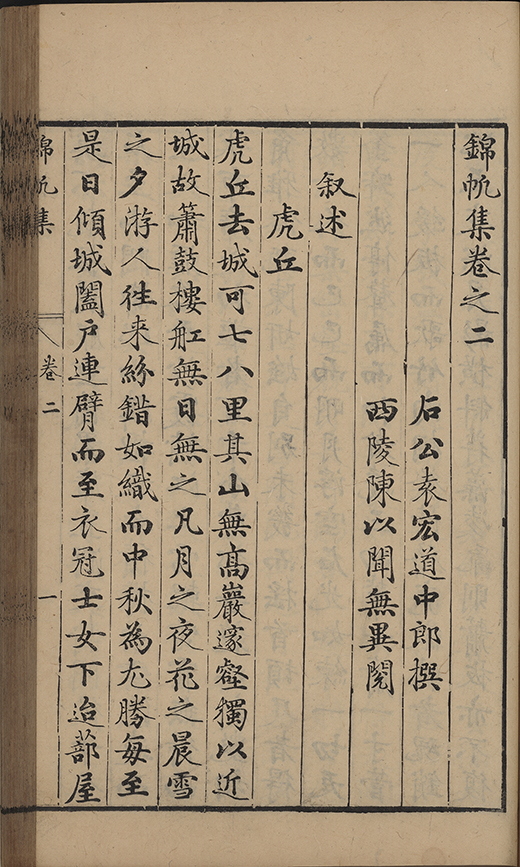 錦帆集卷之二
石公袁宏道中郎撰
西陵陳以聞無異閱
叙述
虎丘
虎丘去城可七八里其山無高巖邃壑獨以近
城故簫鼓樓舡無日無之凡月之夜花之晨雪
之夕游人往来紛錯如織而中秋為尤勝每至
是日傾城闔户連臂而至衣冠士女下迨蔀屋
錦帆集
卷二
一